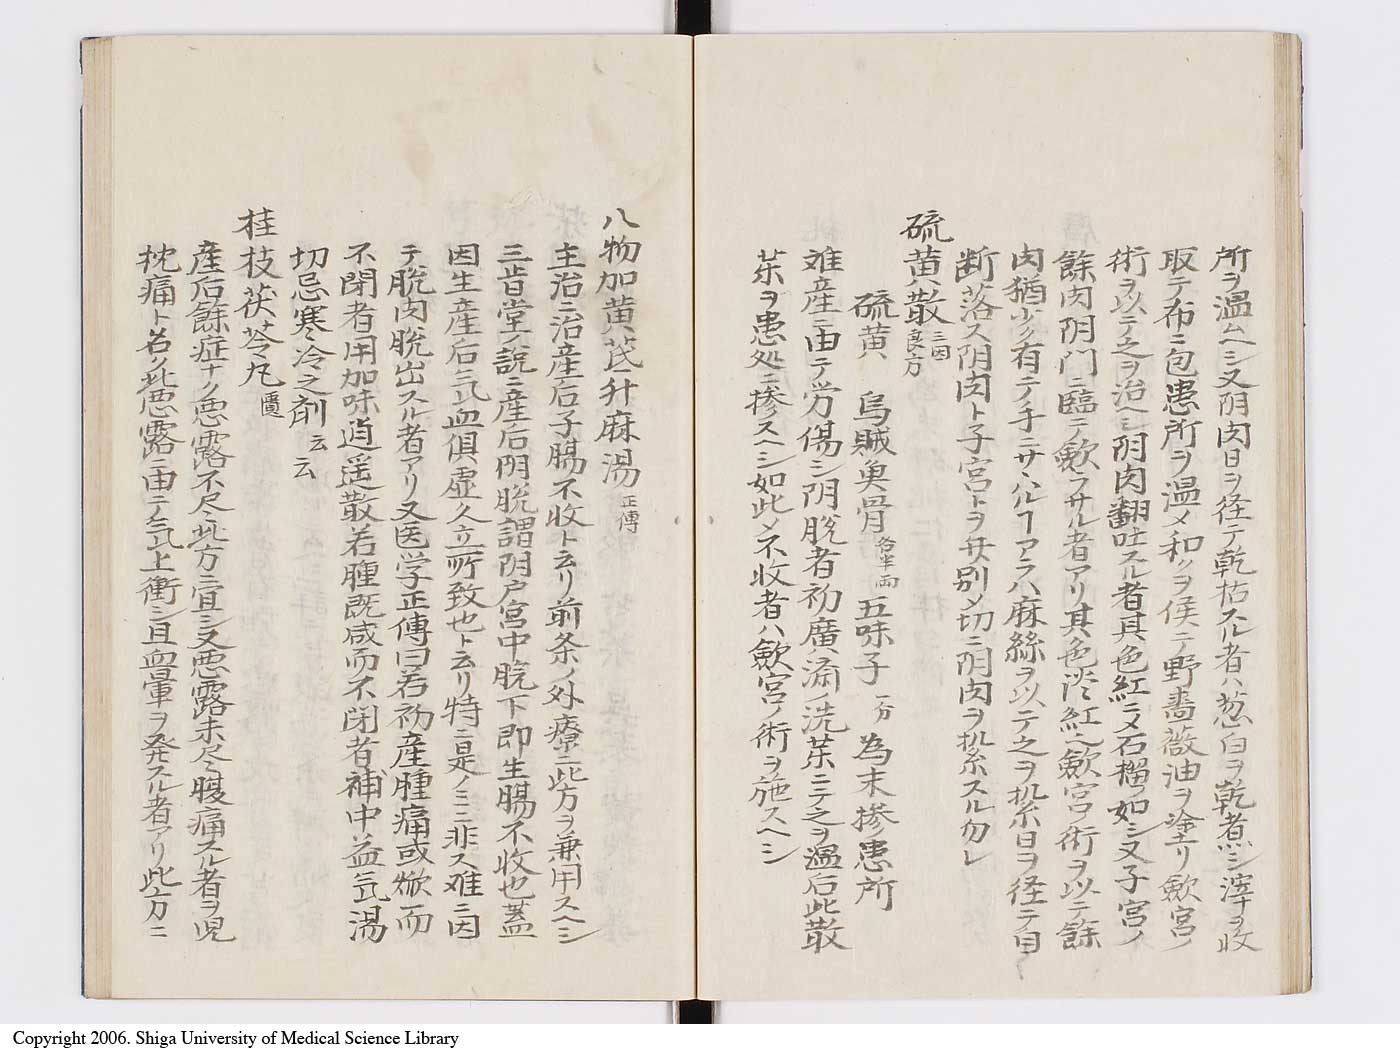 所ヲ温ムヘシ又阴肉日ヲ径テ乾枯スル者ハ葱白ヲ乾煮シ滓ヲ收
取テ布ニ包患所ヲ温メ和ラクヲ侯テ野薔薇油ヲ塗リ歛宮ノ
術ヲ以テ之ヲ治ヘシ阴肉翻吐スル者其色紅ニメ石榴ノ如シ又子宮ノ
餘肉阴门ニ臨テ歛ラサル者アリ其色淡紅之歛宮ノ術ヲ以テ餘
肉猶少ク有テ手ニサハルヿアラハ麻絲ヲ以テ之ヲ紮日ヲ径テ自
断落ス阴肉ト子宮トヲ弁別メ切ニ阴肉ヲ紮スル勿レ
硫黄散 三因良方
硫黄 烏賊魚骨 各半両 五味子 一分 為末摻患所
难産ニ由テ労傷シ阴脱者初廣濟ノ洗茱ニテ之ヲ温后此散
茱ヲ患処ニ摻スヘシ如此メ不收者ハ歛宮ノ術ヲ施スヘシ
八物加黄芪升麻湯 正傳
主治ニ治産后子腸不收ト云リ前条ノ外療ニ此方ヲ兼用スヘシ
三肯堂ノ説ニ産后阴脱謂阴户宮中脱下即生腸不收也蓋
因生産后气血俱虚久立所致也ト云リ特ニ是ノミニ非ス难ニ因
テ脱肉脱出スル者アリ又医学正傳曰若初産腫痛或焮而
不閉者用加味逍遥散若腫既减而不閉者補中益气湯
切忌寒冷之剤云云
桂枝茯苓丸 匱
産后餘症ナク悪露不尽此方ニ宜シ又悪露未尽腹痛スル者ヲ児
枕痛ト名ク此悪露ニ由テ气上衝シ且血暈ヲ発スル者アリ此方ニ
Copyright 2006. Shiga University of Medical Science Library